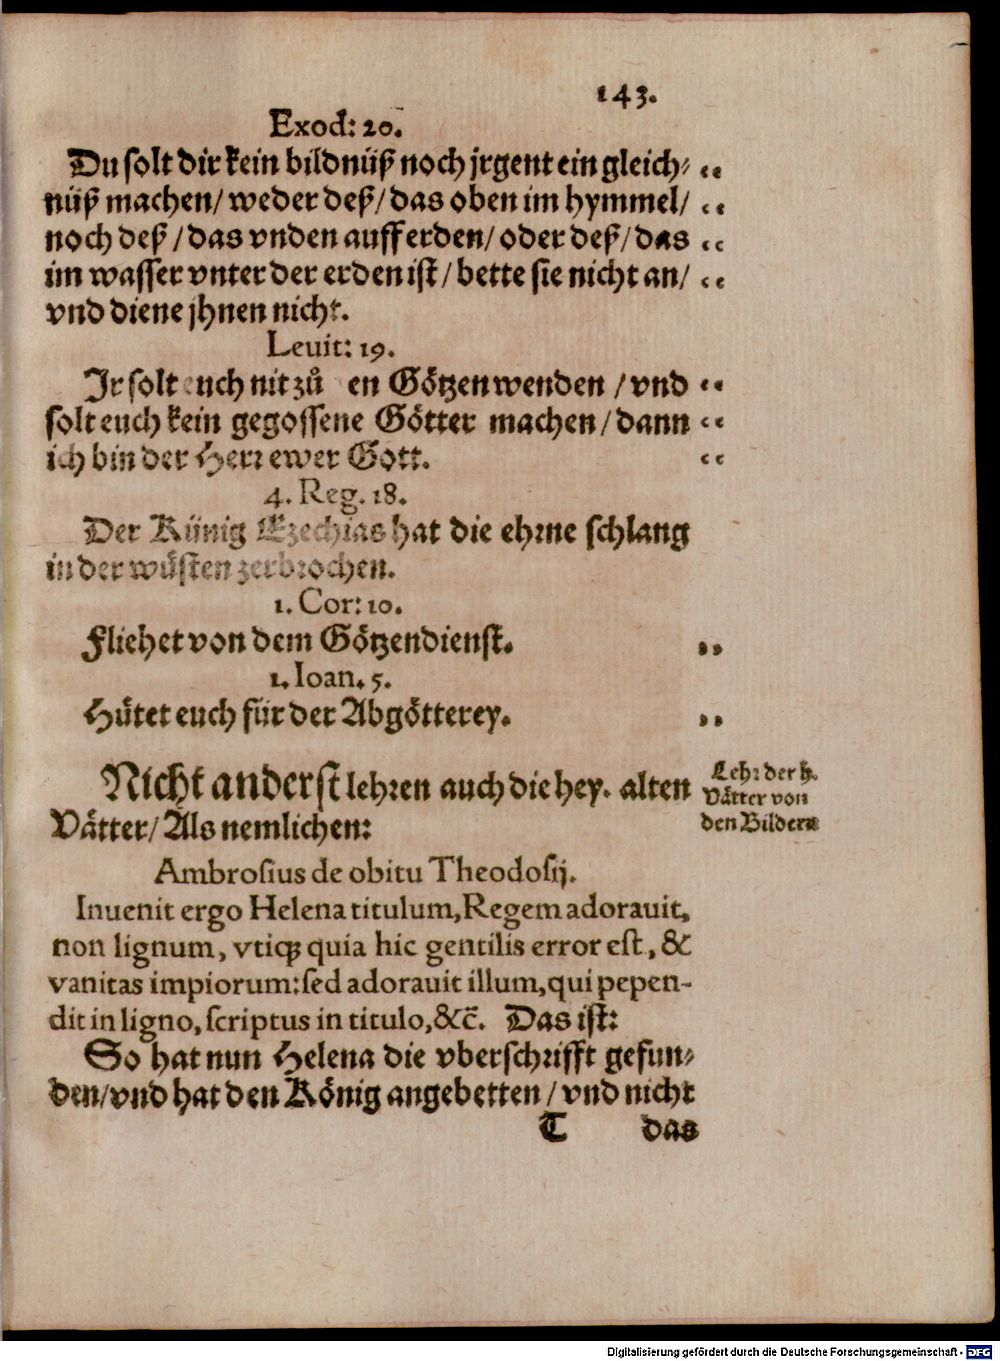 143.
Exod: 20.
Du solt dir kein bildnüß noch jrgent ein gleich-
nüß machen/ weder deß/ das oben im hymmel/
noch deß/ das vnden auff erden/ oder deß/ das
im wasser vnter der erden ist/ bette sie nicht an/
vnd diene jhnen nicht.
Leuit: 19.
Jr solt euch nit zů en Götzen wenden / vnd
solt euch kein gegossene Götter machen/ dann
ich bin der Herr ewer Gott.
4. Reg. 18.
Der Künig Ezechias hat die ehrne schlang
in der wüsten zerbrochen.
1. Cor: 10.
Fliehet von dem Götzendienst.
1. Ioan. 5.
Hütet euch für der Abgötterey.
Nicht anderst lehren auch die hey. alten
Vätter/ Als nemlichen:
Lehr der h.
Vätter von
den Bildern
Ambrosius de obitu Theodosij.
Inuenit ergo Helena titulum, Regem adorauit,
non lignum, vtiq; quia hic gentilis error est, &
vanitas impiorum: sed adorauit illum, qui pepen-
dit in ligno, scriptus in titulo, &c̄. Das ist:
So hat nun Helena die vberschrifft gefun-
den/ vnd hat den König angebetten / vnd nicht
T das
Digitalisierung gefördert durch die Deutsche Forschungsgemeinschaft - DFG